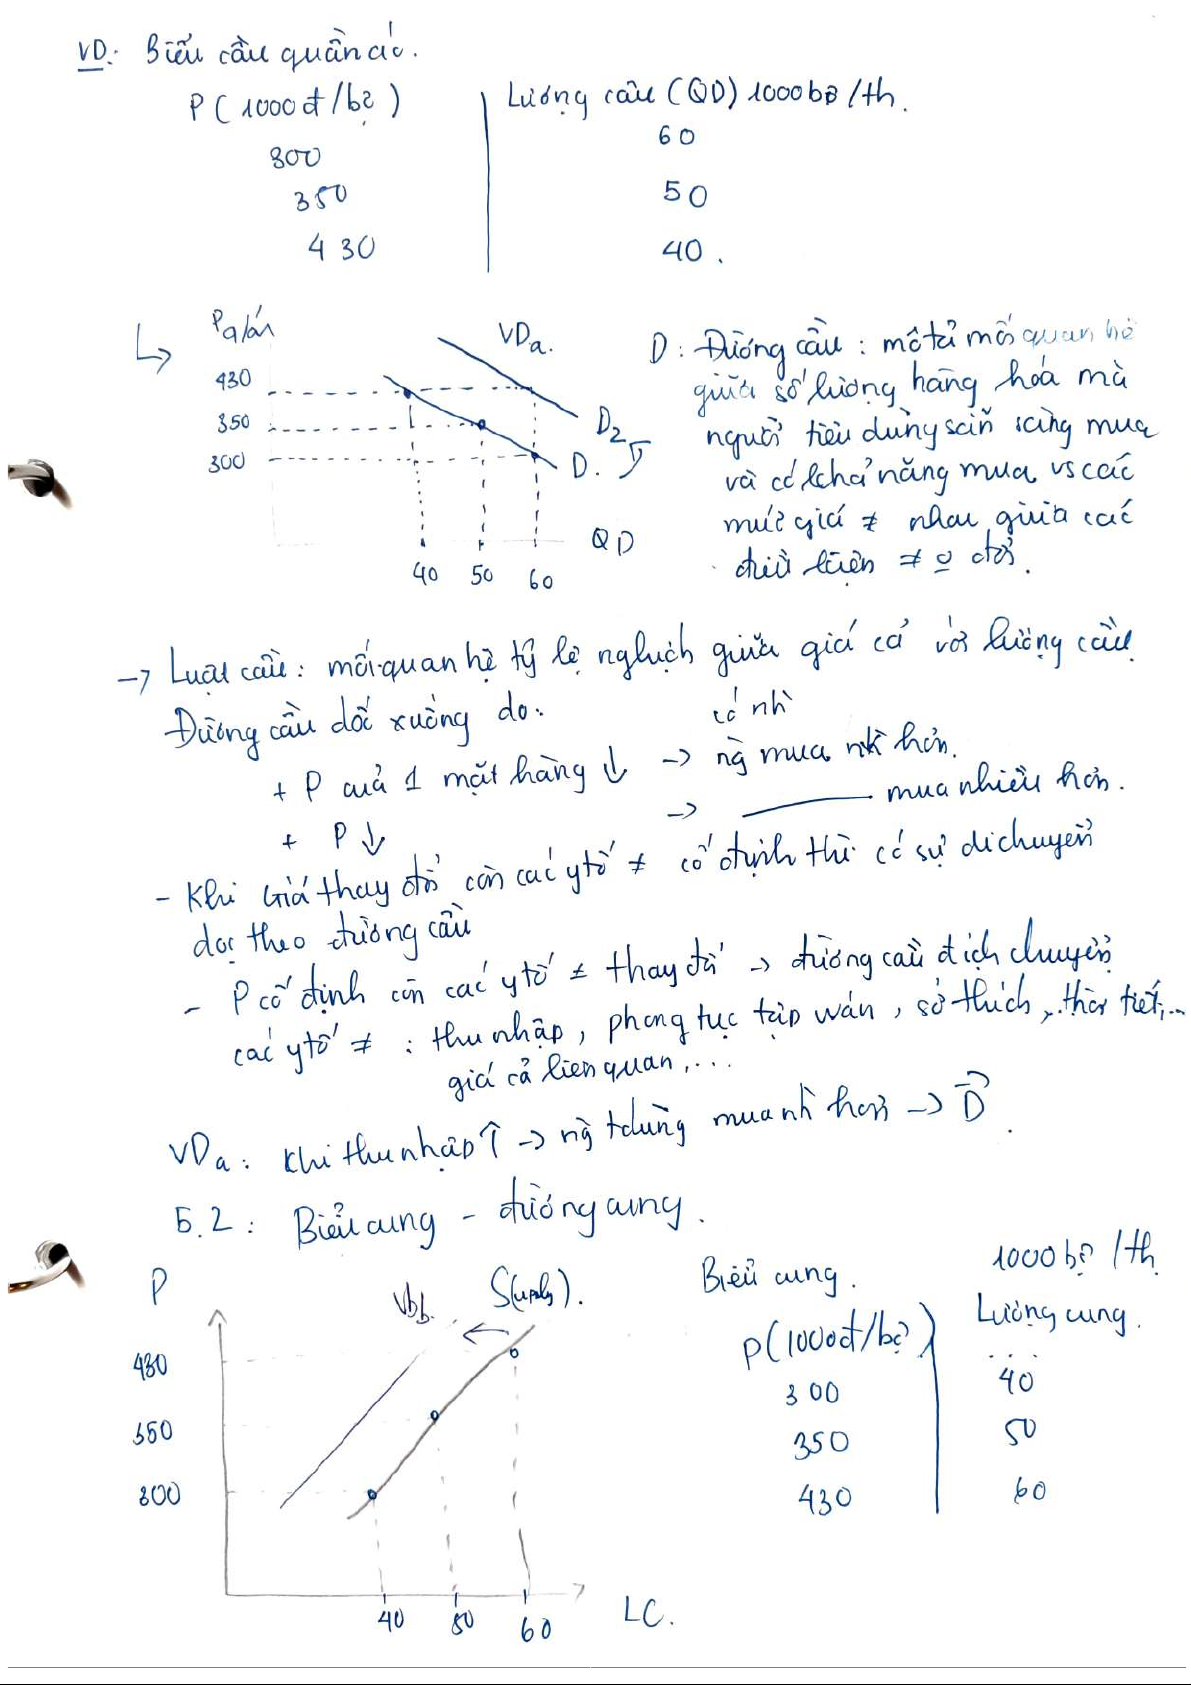 VD: Biểu cầu quần áo.
P (1000đ/bộ) Lượng cầu (QD) 1000bộ/th.
300 60
350 50
430 40.
P q/áo VDa.
430
350
300
D2
D.
QD
40 50 60
D: Đường cầu: mô tả mối quan hệ
giữa số lượng hàng hóa mà
người tiêu dùng sẵn sàng mua
và có khả năng mua vs các
mức giá ≠ nhau, giữa các
điều kiện ≠ o đổi.
-> Luật cầu: mối quan hệ tỷ lệ nghịch giữa giá cả với lượng cầu
Đường cầu dốc xuống do:
có nh`
+ P của 1 mặt hàng ↓ -> ng` mua nh` hơn.
+ P ↓ -> ——— mua nhiều hơn.
- Khi giá thay đổi còn các ytố ≠ cố định thì có sự di chuyển
dọc theo đường cầu
- P cố định còn các ytố ≠ thay đổi -> đường cầu dịch chuyển
các ytố ≠ : thu nhập, phong tục tập quán, sở thích, thời tiết,...
giá cả liên quan,...
VDa: Khi thu nhập ↑ -> ng` tdùng mua nh` hơn -> D.
5.2: Biểu cung - đường cung.
P VDb. S(upply).
430
350
300
40 50 60 LC.
Biểu cung. 1000bộ/th
P(1000đ/bộ) Lượng cung.
300 40
350 50
430 60